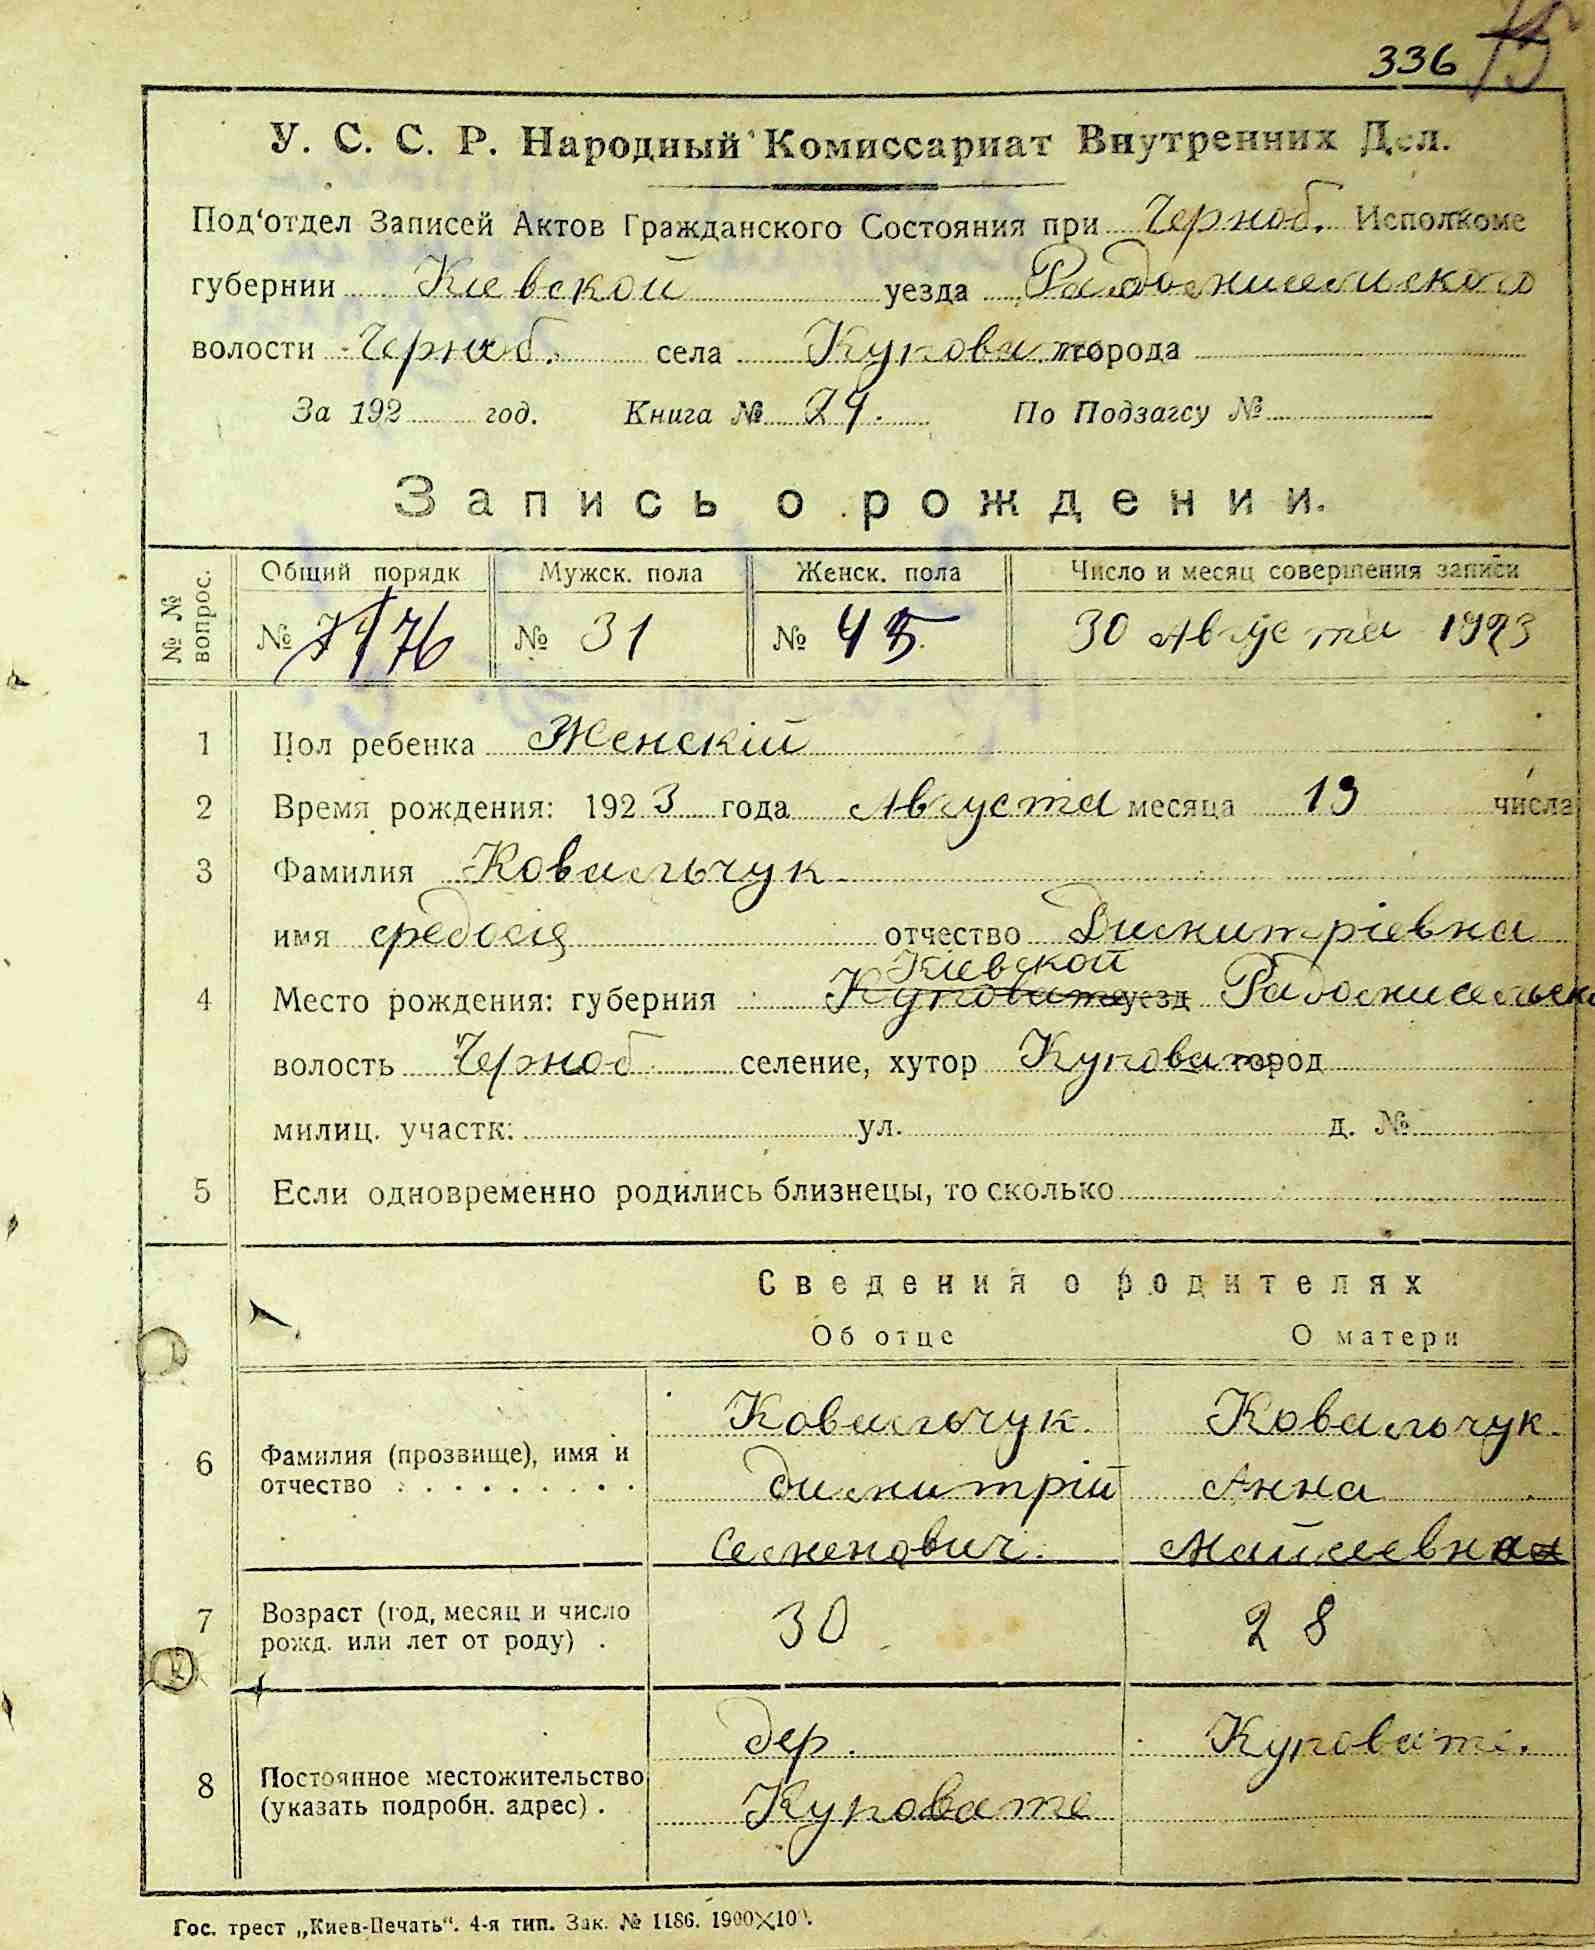 336 75
У. С. С. Р. Народный Комиссариат Внутренних Дел.
Под'отдел Записей Актов Гражданского Состояния при Черноб. Исполкоме
губернии Киевской уезда Радомисельского
волости Черноб. села Куповате города
За 192 год. Книга № 24. По Подзагсу №
Запись о рождении.
№ № вопрос. Общий порядк Мужск. пола Женск. пола Число и месяц совершения записи
№ 76 № 31 № 45 30 Августа 1923
1 Пол ребенка Женскій
2 Время рождения: 1923 года Августа месяца 19 числа
3 Фамилия Ковальчук
имя Федосія отчество Димитріевна
Кіевской
4 Место рождения: губерния Куповате уезд Радомисельск
волость Черноб селение, хутор Куповат город
милиц. участк: ул. д. №
5 Если одновременно родились близнецы, то сколько
Сведения о родителях
Об отце О матери
Ковальчук. Ковальчук.
6 Фамилия (прозвище), имя и
отчество Димитрій Анна
Семенович. Майсеевна
7 Возраст (год, месяц и число
рожд. или лет от роду) . 30 28
дер. Куповате.
8 Постоянное местожительство
(указать подробн. адрес) . Куповате
Гос. трест „Киев-Печать“. 4-я тип. Зак. № 1186. 1900×10